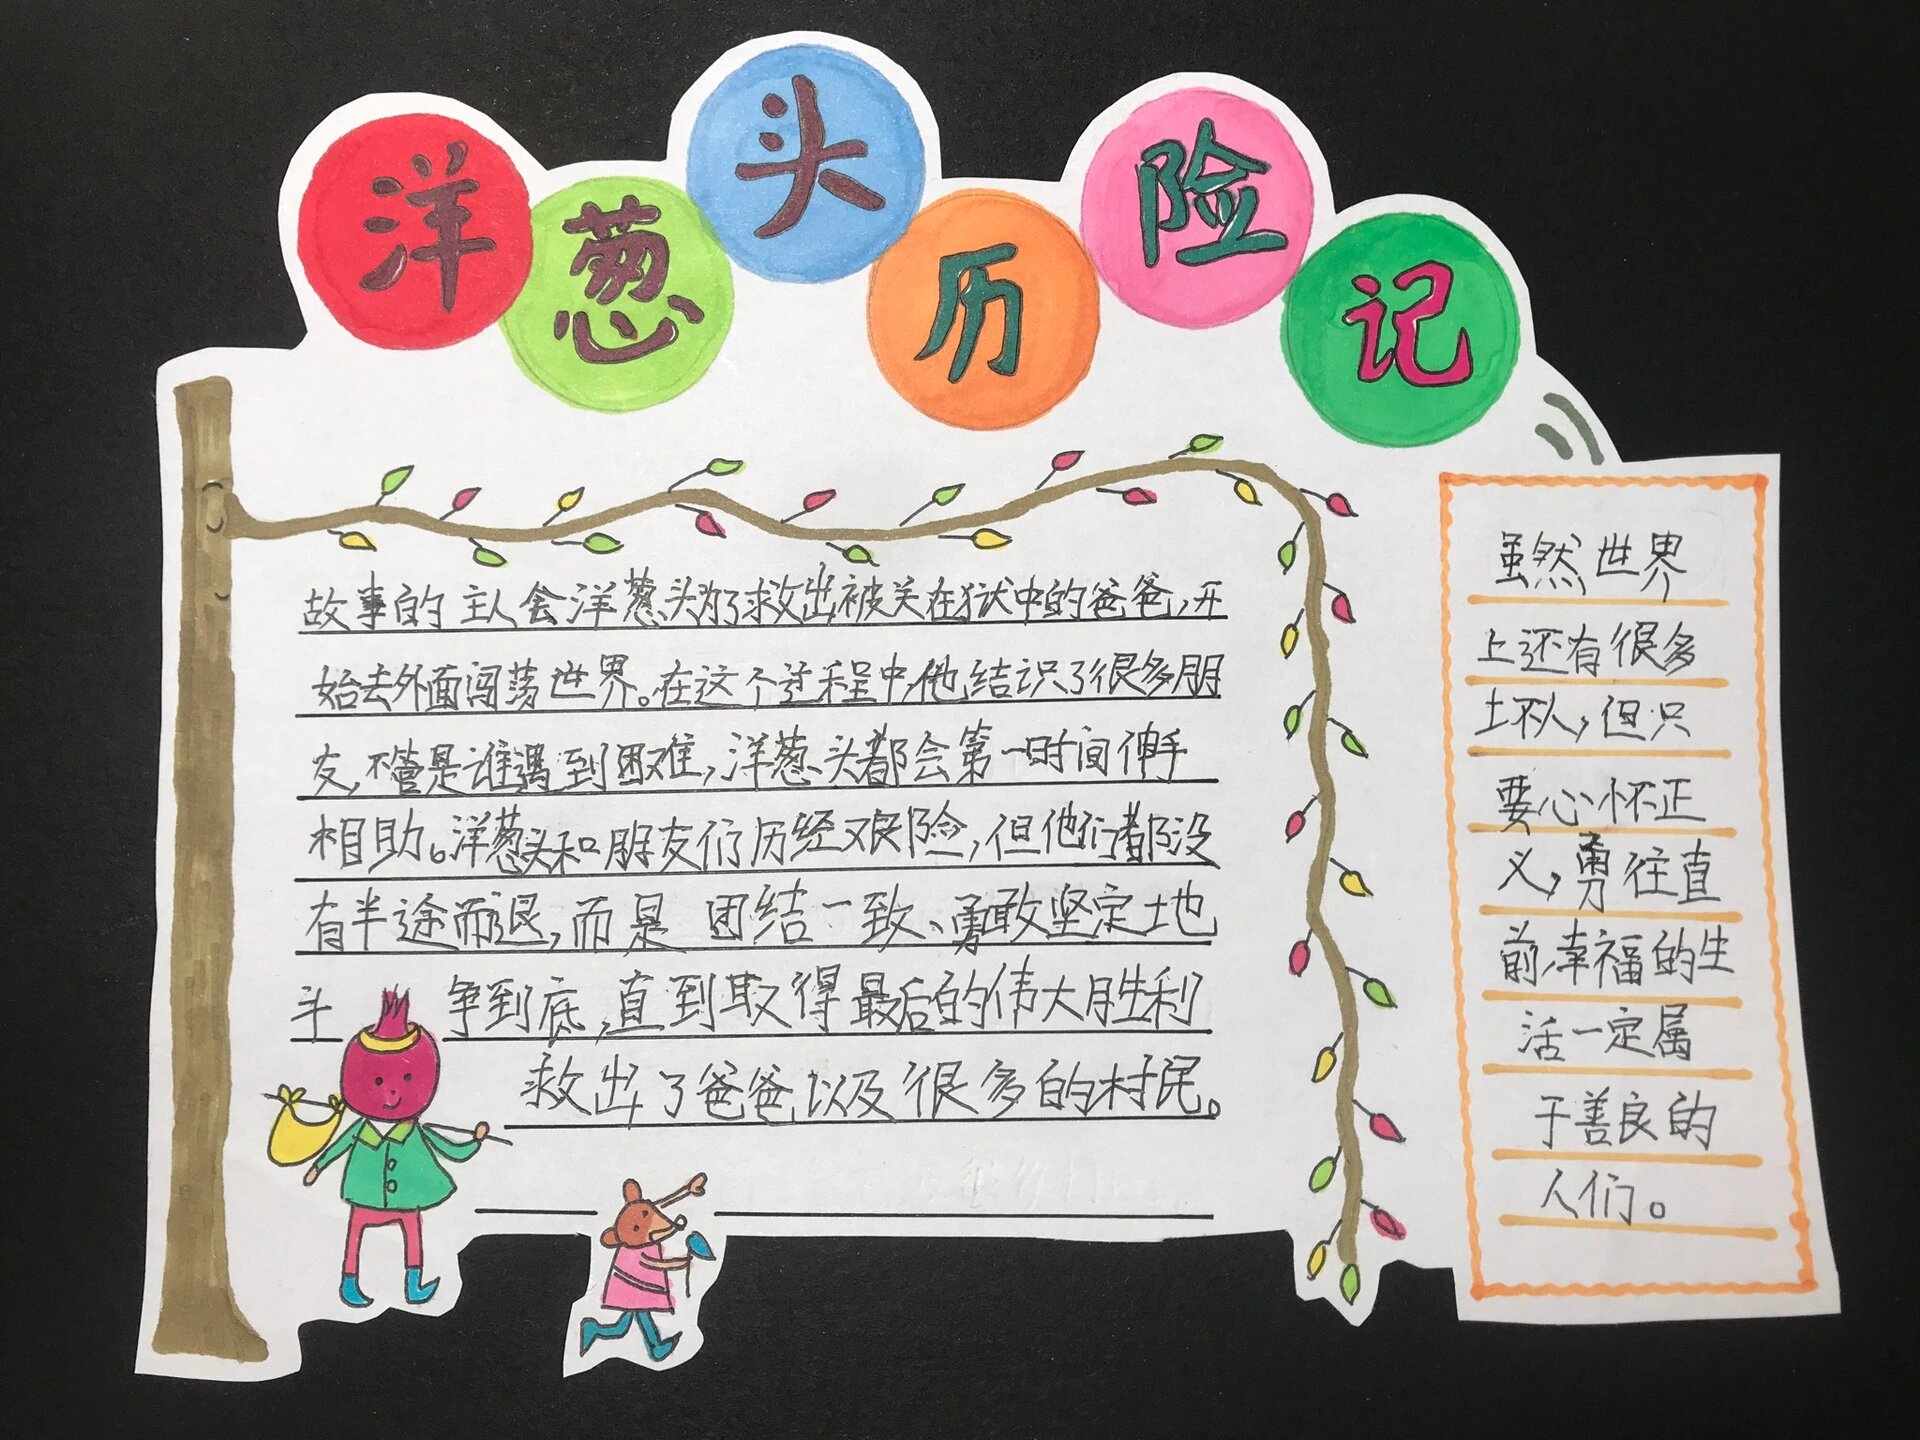 洋葱头历险记
故事的主人会洋葱头为了救出被关在狱中的爸爸,开
始去外面闯荡世界。在这个过程中,他结识了很多朋
友,不管是谁遇到困难,洋葱头都会第一时间伸手
相助。洋葱头和朋友们历经艰险,但他们都没
有半途而退,而是团结一致、勇敢坚定地
斗争到底,直到取得最后的伟大胜利
救出了爸爸以及很多的村民。
虽然世界
上还有很多
坏人,但只
要心怀正
义,勇往直
前,幸福的生
活一定属
于善良的
人们。